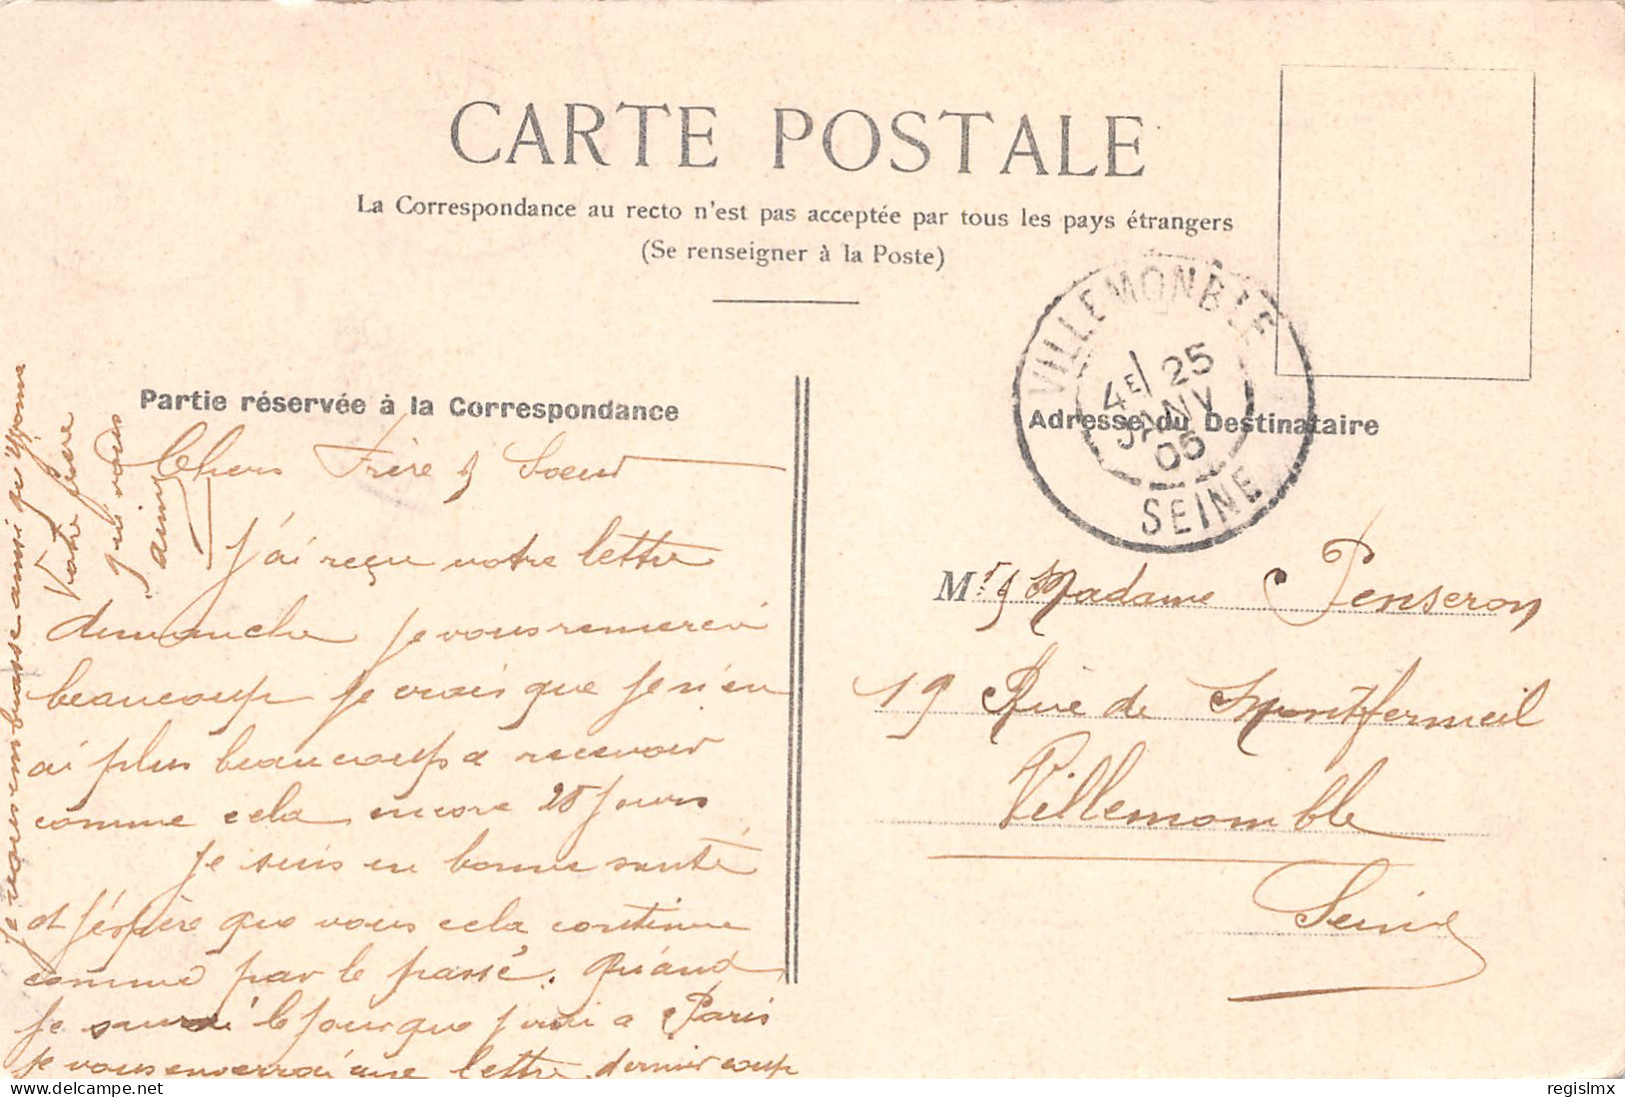 CARTE POSTALE
La Correspondance au recto n'est pas acceptée par tous les pays étrangers
(Se renseigner à la Poste)
Partie réservée à la Correspondance
Adresse du Destinataire
VILLEMONBLE
4E/ 25
JANV
05
SEINE
Chers Frère & Soeur
J'ai reçu votre lettre
dimanche je vous remercie
beaucoup je crois que je n'en
ai plus beaucoup a recevoir
comme cela encore 28 jours
Je suis en bonne santé
et j'éspère que vous cela continue
comme par le passé. Quand
je saurai le jour que j'irai a Paris
je vous enverrai une lettre dernier coup
Je vous embrasse ainsi qu'
Votre frère
qui vous
aime
Mr & Madame Penseron
19 Rue de Montfermeil
Villemomble
Seine
delcampe.net
regislmx